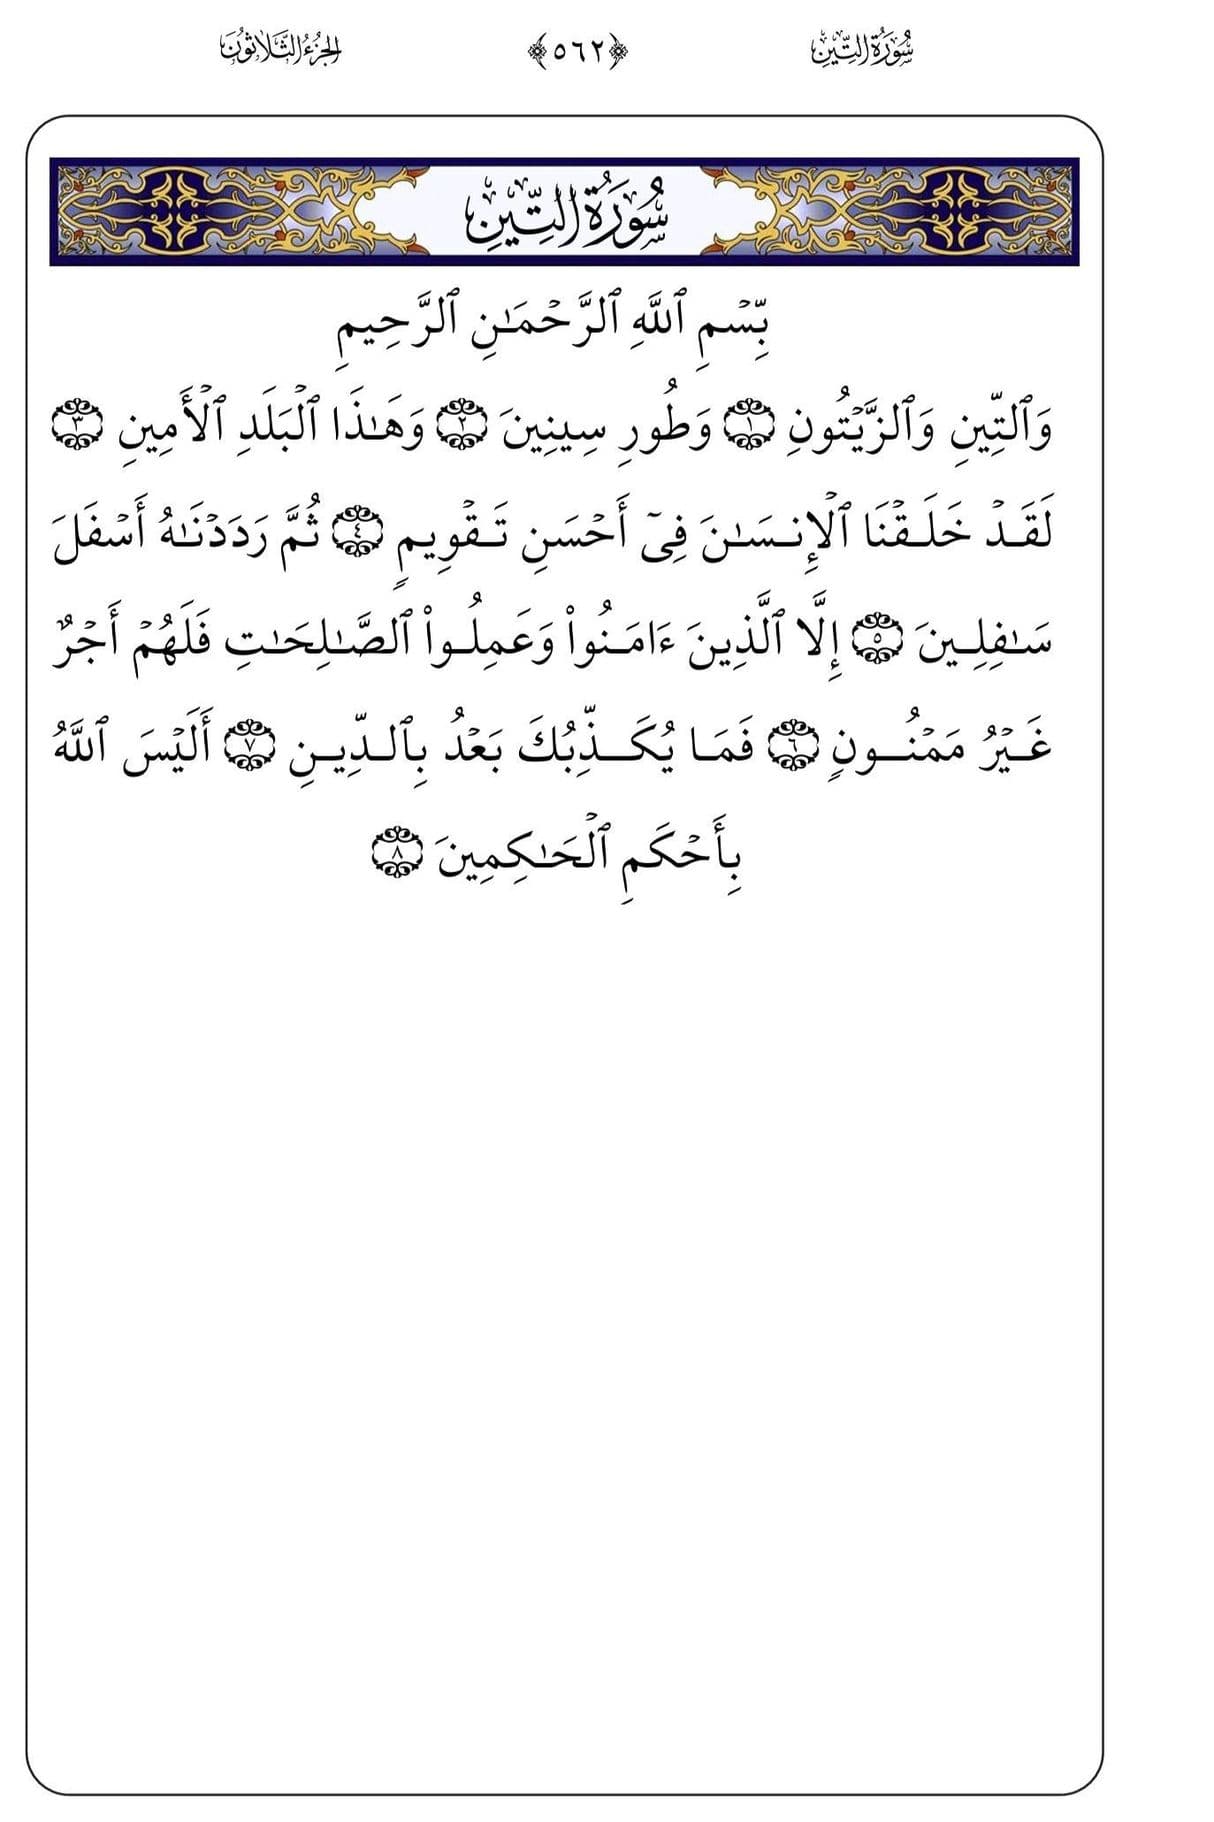 سُورَةُ التِّينِ ﴿٥٦٢﴾ الجُزْءُ الثَّلَاثُونَ
سُورَةُ التِّينِ
بِّسۡمِ ٱللَّهِ ٱلرَّحۡمَـٰنِ ٱلرَّحِيمِ
وَٱلتِّينِ وَٱلزَّيۡتُونِ ١ وَطُورِ سِينِينَ ٢ وَهَـٰذَا ٱلۡبَلَدِ ٱلۡأَمِينِ ٣
لَقَدۡ خَلَقۡنَا ٱلۡإِنسَـٰنَ فِىٓ أَحۡسَنِ تَقۡوِيمٍ ٤ ثُمَّ رَدَدۡنَـٰهُ أَسۡفَلَ
سَـٰفِلِينَ ٥ إِلَّا ٱلَّذِينَ ءَامَنُوا۟ وَعَمِلُوا۟ ٱلصَّـٰلِحَـٰتِ فَلَهُمۡ أَجۡرٌ
غَيۡرُ مَمۡنُونٍ ٦ فَمَا يُكَذِّبُكَ بَعۡدُ بِٱلدِّينِ ٧ أَلَيۡسَ ٱللَّهُ
بِأَحۡكَمِ ٱلۡحَـٰكِمِينَ ٨